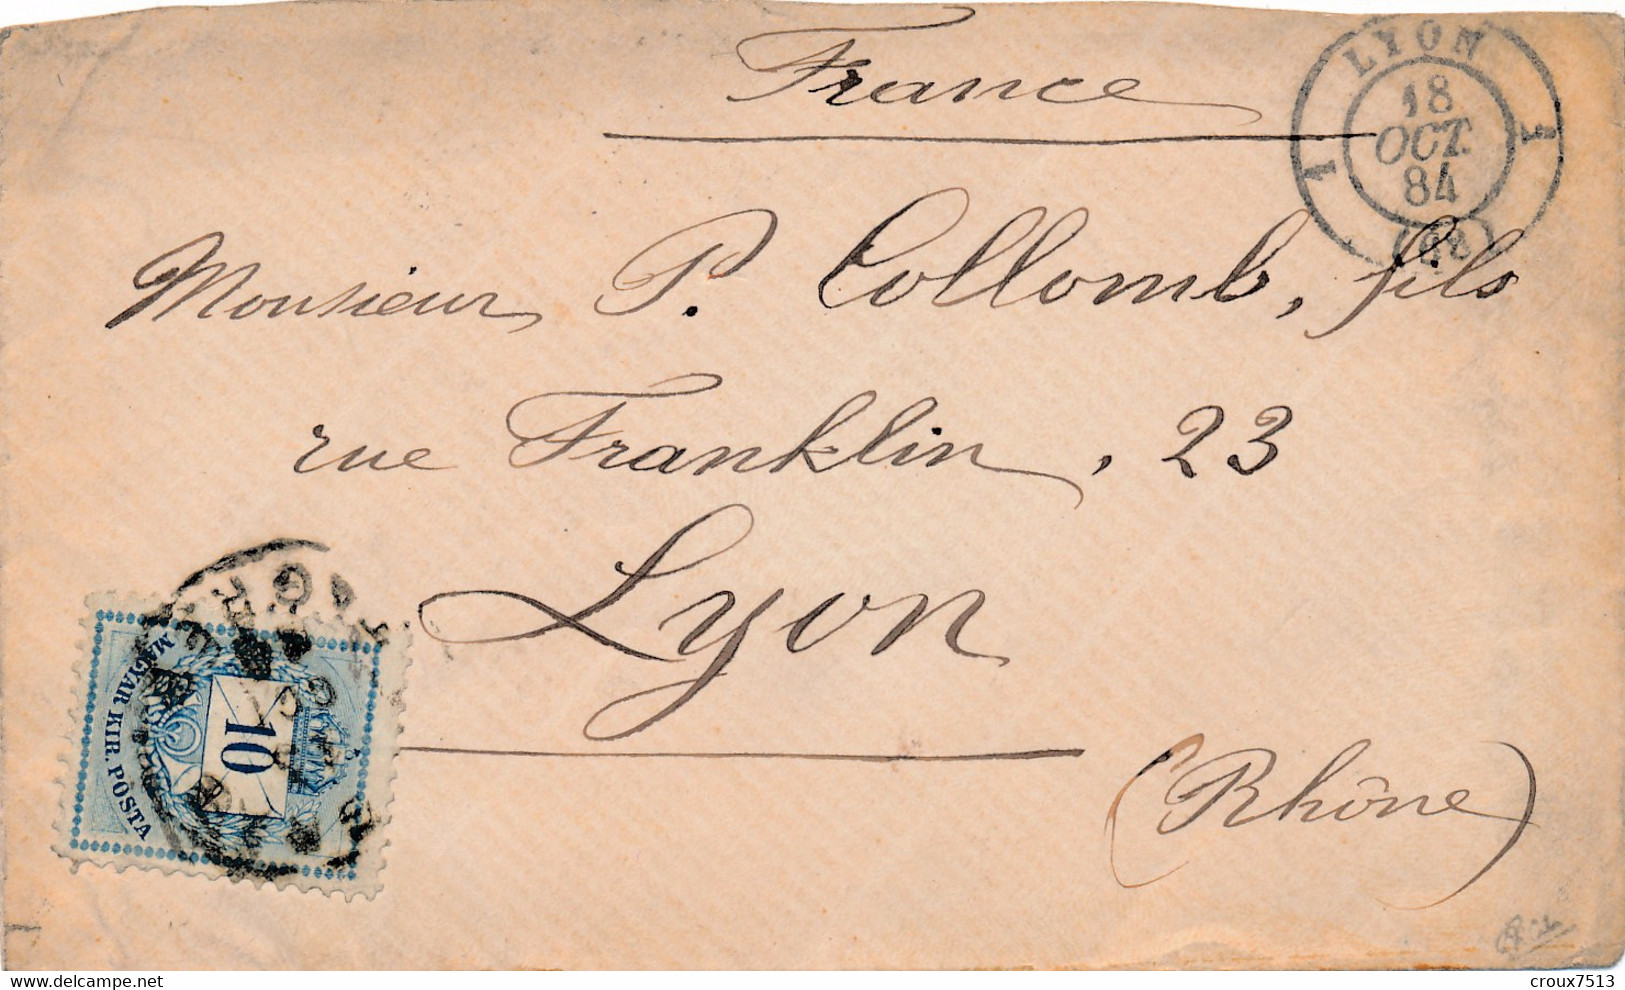 France
LYON
18
OCT.
84
1
1
(68)
Monsieur P. Collomb, fils
rue Franklin, 23
Lyon
(Rhône)
MAGYAR KIR. POSTA
10
www.delcampe.net
croux7513